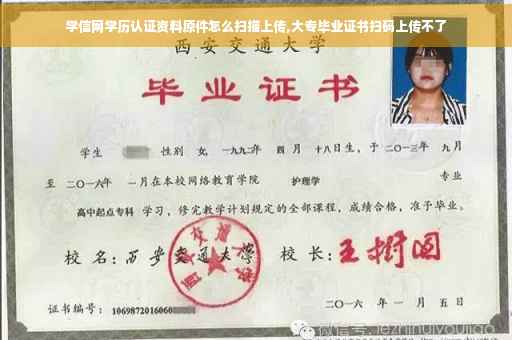 学信网学历认证资料原件怎么扫描上传,大专毕业证书扫码上传不了
西安交通大学
毕业证书
学生 性别 女,一九九二年 四 月 十八日生,于 二〇一三年 九 月
至 二〇一六年 一月在本校网络教育学院 护理学 专业
高中起点专科 学习,修完教学计划规定的全部课程,成绩合格,准予毕业。
校 名:西安交通大学 校 长:王树国
西安交通大学
证书编号:1069872016060
二〇一六 年 一 月 五 日
微信号: jezhinuiyoujiao